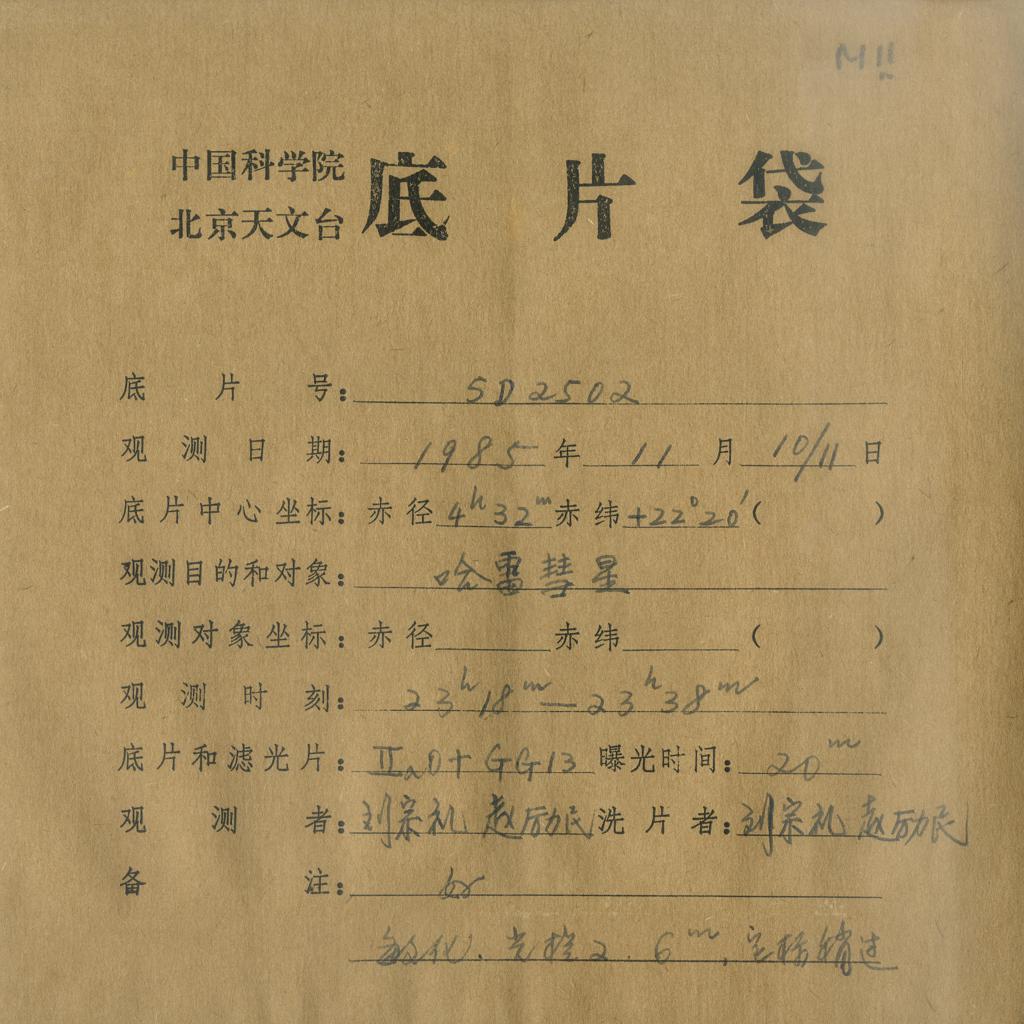 M11
中国科学院
北京天文台
底片袋
底片号: SD2502
观测日期: 1985年11月10/11日
底片中心坐标: 赤径4h32m赤纬+22°20′( )
观测目的和对象: 哈雷彗星
观测对象坐标: 赤径 赤纬 ( )
观测时刻: 23h18m—23h38m
底片和滤光片: IIaO+GG13 曝光时间: 20m
观测者: 刘宗礼 赵励民 洗片者: 刘宗礼 赵励民
备注: 好
敏化、光栏2.6m,定标稍过